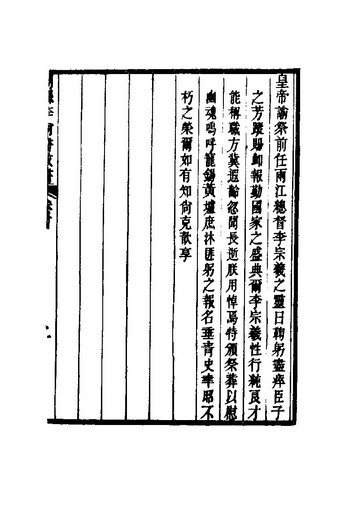 皇帝諭祭前任兩江總督李宗羲之靈曰鞠躬盡瘁臣子
之芳蹤賜卹報勤國家之盛典爾李宗羲性行純良才
能稱職方冀遐齡忽聞長逝朕用悼焉特頒祭葬以慰
幽魂嗚呼寵錫黃壚庶沐匪躬之報名垂青史聿昭不
朽之榮爾如有知尚克歆享